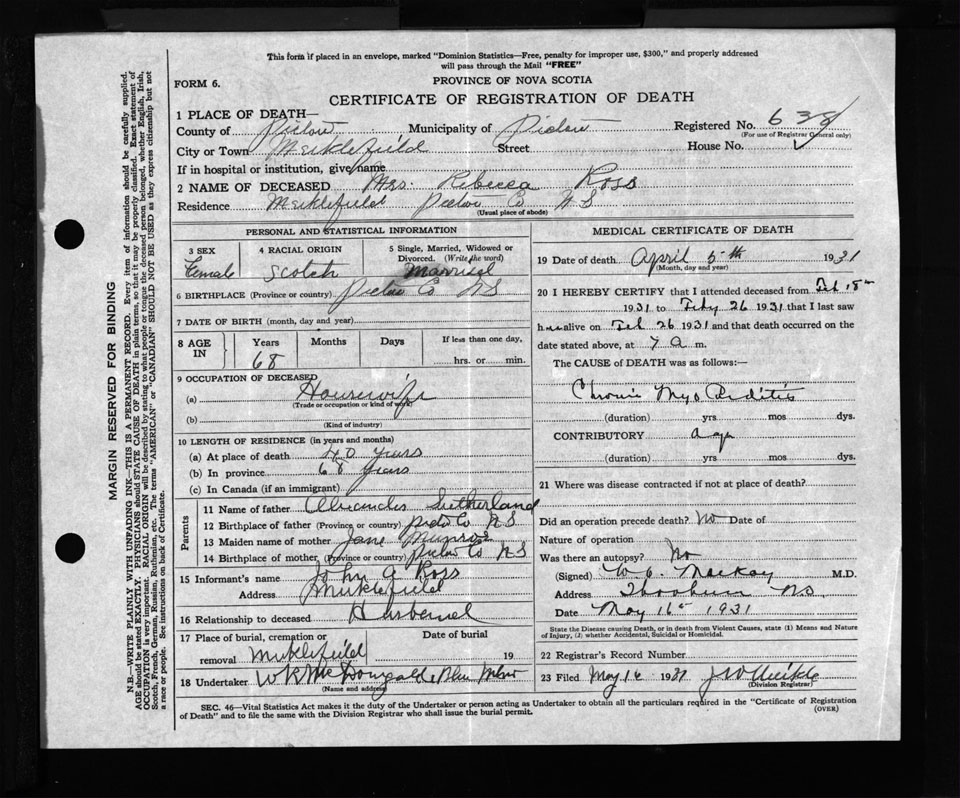 This form if placed in an envelope, marked "Dominion Statistics—Free, penalty for improper use, $300," and properly addressed
will pass through the Mail "FREE"
FORM 6.
PROVINCE OF NOVA SCOTIA
CERTIFICATE OF REGISTRATION OF DEATH
1 PLACE OF DEATH—
County of Pictou Municipality of Pictou Registered No. 638
(For use of Registrar General only)
City or Town Meiklefield Street House No.
If in hospital or institution, give name
2 NAME OF DECEASED Mrs. Rebecca Ross
Residence Meiklefield Pictou Co N S
(Usual place of abode)
PERSONAL AND STATISTICAL INFORMATION
3 SEX Female
4 RACIAL ORIGIN Scotch
5 Single, Married, Widowed or
Divorced. (Write the word)
Married
6 BIRTHPLACE (Province or country) Pictou Co N S
7 DATE OF BIRTH (month, day and year)
8 AGE IN Years Months Days If less than one day,
68 hrs. or min.
9 OCCUPATION OF DECEASED
(a) Housewife
(Trade or occupation or kind of work)
(b)
(Kind of industry)
10 LENGTH OF RESIDENCE (in years and months)
(a) At place of death 40 years
(b) In province 68 years
(c) In Canada (if an immigrant)
Parents
11 Name of father Alexander Sutherland
12 Birthplace of father (Province or country) Pictou Co N S
13 Maiden name of mother Jane Munroe
14 Birthplace of mother (Province or country) Pictou Co N S
15 Informant's name John A Ross
Address Meiklefield
16 Relationship to deceased Husband
17 Place of burial, cremation or Date of burial
removal Meiklefield 19
18 Undertaker W R McDougald Blue
(Name and address)
MEDICAL CERTIFICATE OF DEATH
19 Date of death April 5th 1931
(Month, day and year)
20 I HEREBY CERTIFY that I attended deceased from Feb 18th
1931 to Feby 26 1931 that I last saw
h er alive on Feb 26 1931 and that death occurred on the
date stated above, at 7 a m.
The CAUSE OF DEATH was as follows:—
Chronic Myocarditis
(duration) yrs mos dys.
CONTRIBUTORY age
(duration) yrs. mos. dys.
21 Where was disease contracted if not at place of death?
Did an operation precede death? No Date of
Nature of operation
Was there an autopsy? No
(Signed) W. O. MacKay M.D.
Address Thorburn N.S.
Date May 16th 1931
State the Disease causing Death, or in death from Violent Causes, state (1) Means and Nature
of Injury, (2) whether Accidental, Suicidal or Homicidal.
22 Registrar's Record Number
23 Filed May 16 1931 J W Meikle
(Division Registrar)
SEC. 46—Vital Statistics Act makes it the duty of the Undertaker or person acting as Undertaker to obtain all the particulars required in the "Certificate of Registration
of Death" and to file the same with the Division Registrar who shall issue the burial permit.
(OVER)
MARGIN RESERVED FOR BINDING
N.B.—WRITE PLAINLY WITH UNFADING INK—THIS IS A PERMANENT RECORD. Every item of information should be carefully supplied.
AGE should be stated EXACTLY. PHYSICIANS should STATE CAUSE OF DEATH in plain terms, so that it may be properly classified. Exact statement of
OCCUPATION is very important. RACIAL ORIGIN will be described by stating to what people or tongue the deceased person belonged, whether English, Irish,
Scotch, French, German, Russian, Ruthenian, etc. The terms "AMERICAN" or "CANADIAN" SHOULD NOT BE USED as they express citizenship but not
a race or people. See instructions on back of Certificate.